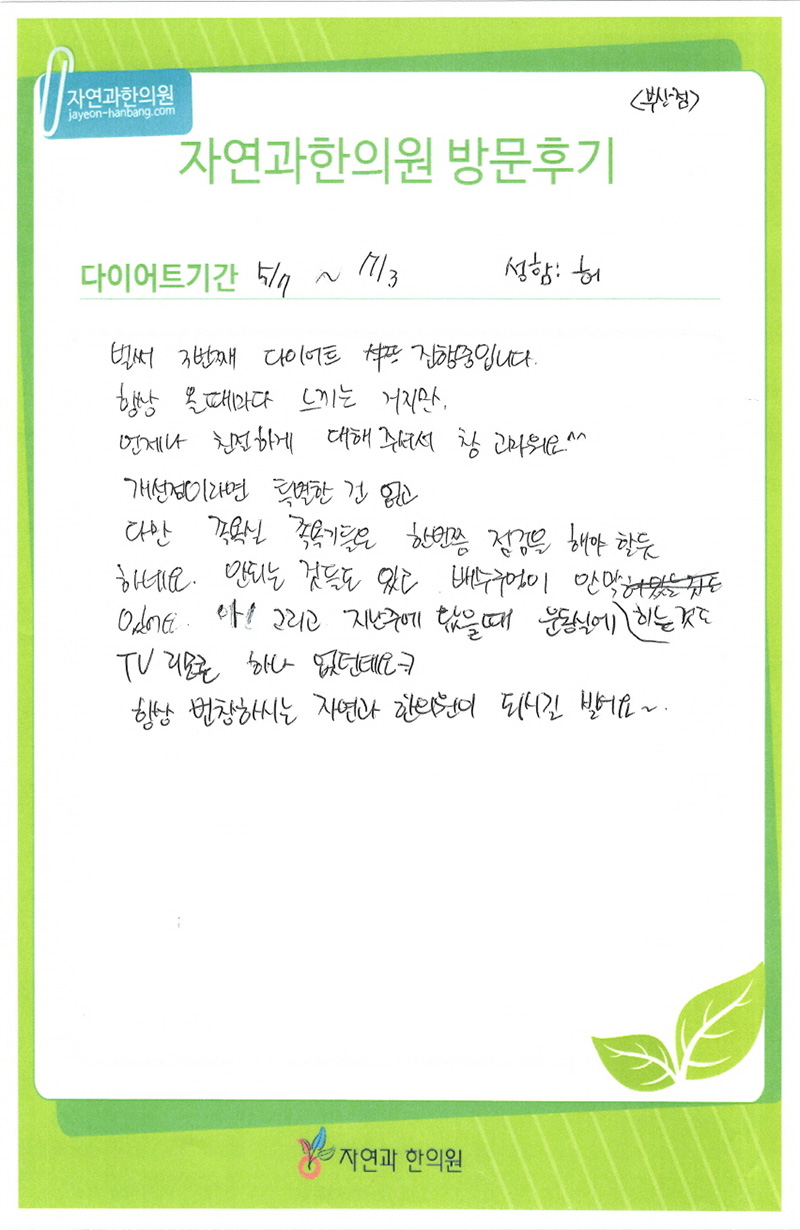 자연과한의원
jayeon-hanbang.com
<부산점>
자연과한의원 방문후기
다이어트기간 5/7 ~ 7/3 성함: 허
벌써 3번째 다이어트 진행중입니다.
항상 올때마다 느끼는 거지만,
언제나 친절하게 대해 주셔서 참 고마워요^^
개선점이라면 특별한 건 없고
다만 족욕실 족욕기들은 한번쯤 점검을 해야 할듯
하네요. 안되는 것들도 있고 배수구멍이 안막히는 것도
있어요. 아! 그리고 지난주에 왔을때 운동실에
TV 리모콘 하나 없던데요ㅋ
항상 번창하시는 자연과 한의원이 되시길 빌어요~.
자연과 한의원